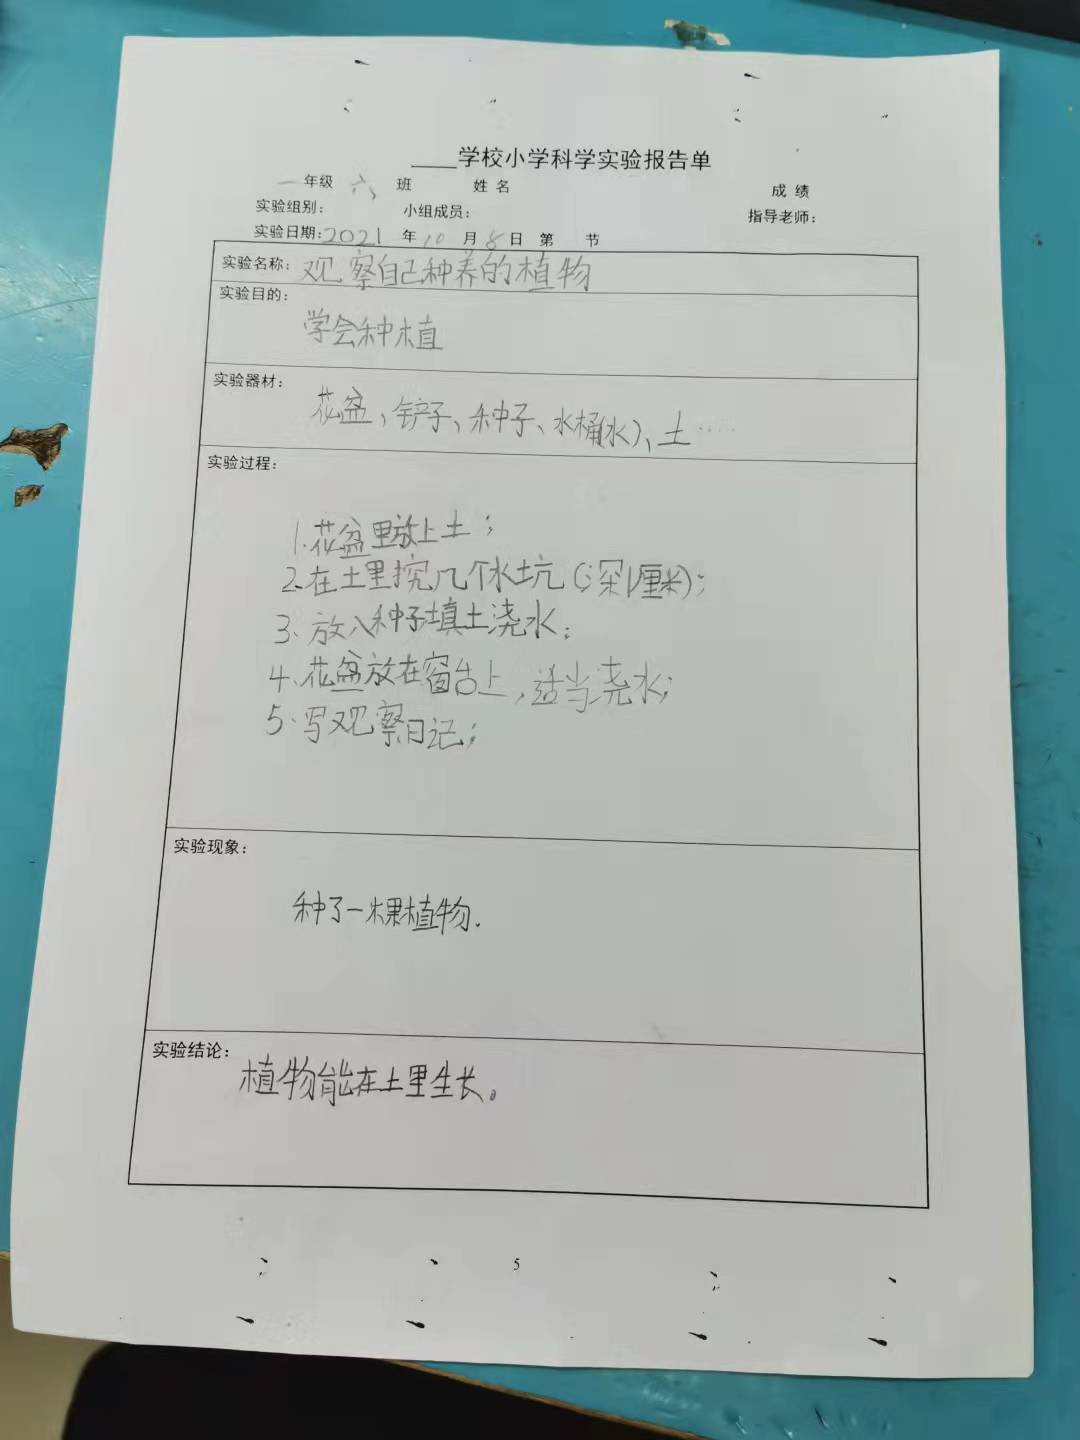 ____学校小学科学实验报告单
一年级 六 班 姓名 成绩
实验组别: 小组成员: 指导老师:
实验日期:2021 年 10 月 8 日 第 节
实验名称: 观察自己种养的植物
实验目的:
学会种植
实验器材:
花盆、铲子、种子、水桶(水)、土……
实验过程:
1.花盆里放上土;
2.在土里挖几个水坑(深1厘米);
3.放入种子填土浇水;
4.花盆放在窗台上,适当浇水;
5.写观察日记;
实验现象:
种了一棵植物.
实验结论:
植物能在土里生长。
5